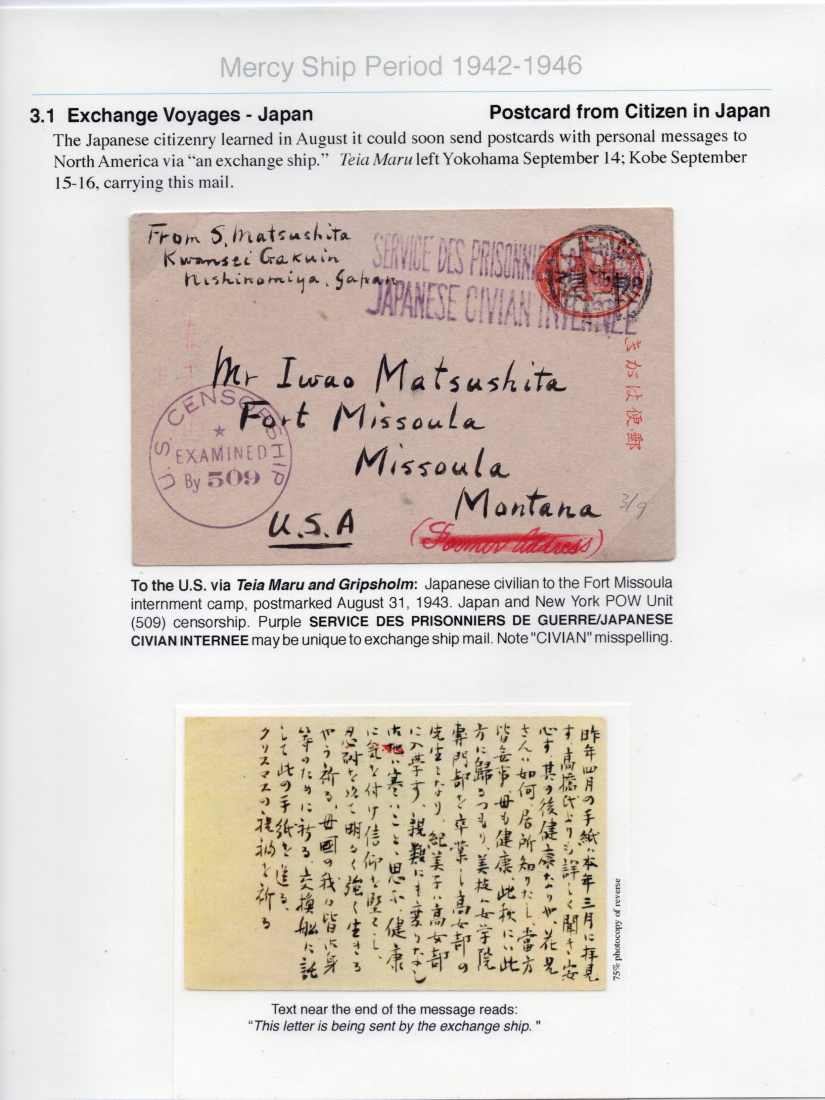 Mercy Ship Period 1942-1946
3.1 Exchange Voyages - Japan
Postcard from Citizen in Japan
The Japanese citizenry learned in August it could soon send postcards with personal messages to
North America via “an exchange ship.” Teia Maru left Yokohama September 14; Kobe September
15-16, carrying this mail.
From S. Matsushita
Kwansei Gakuin
Nishinomiya, Japan
SERVICE DES PRISONNI
JAPANESE CIVIAN INTERNEE
きがは便郵
Mr Iwao Matsushita
Fort Missoula
Missoula
Montana
U.S.A
(Former Address)
3/9
U.S. CENSORSHIP
EXAMINED
By 509
To the U.S. via Teia Maru and Gripsholm: Japanese civilian to the Fort Missoula
internment camp, postmarked August 31, 1943. Japan and New York POW Unit
(509) censorship. Purple SERVICE DES PRISONNIERS DE GUERRE/JAPANESE
CIVIAN INTERNEE may be unique to exchange ship mail. Note "CIVIAN" misspelling.
昨年四月の手紙ハ本年三月に拝見
す、高橋氏よりも詳しく聞き安
心す 其の後健康なりや、花見
さんハ如何、居所知りたし 當方
皆無事、母も健康、此秋にハ此
方に歸るつもり、美枝ハ女学院
専門部を卒業し高女部の
先生となり、紀美子ハ高女部
に入学す、親類にも変りなし
御地ハ寒いことゝ思ふ、健康
に気を付け信仰を堅くし
忍耐を以て明るく強く生きる
やう祈る、母國の我々皆御身
等のために祈る、交換船に託
して此の手紙を送る、
クリスマスの祝福を祈る
75% photocopy of reverse
Text near the end of the message reads:
“This letter is being sent by the exchange ship. "